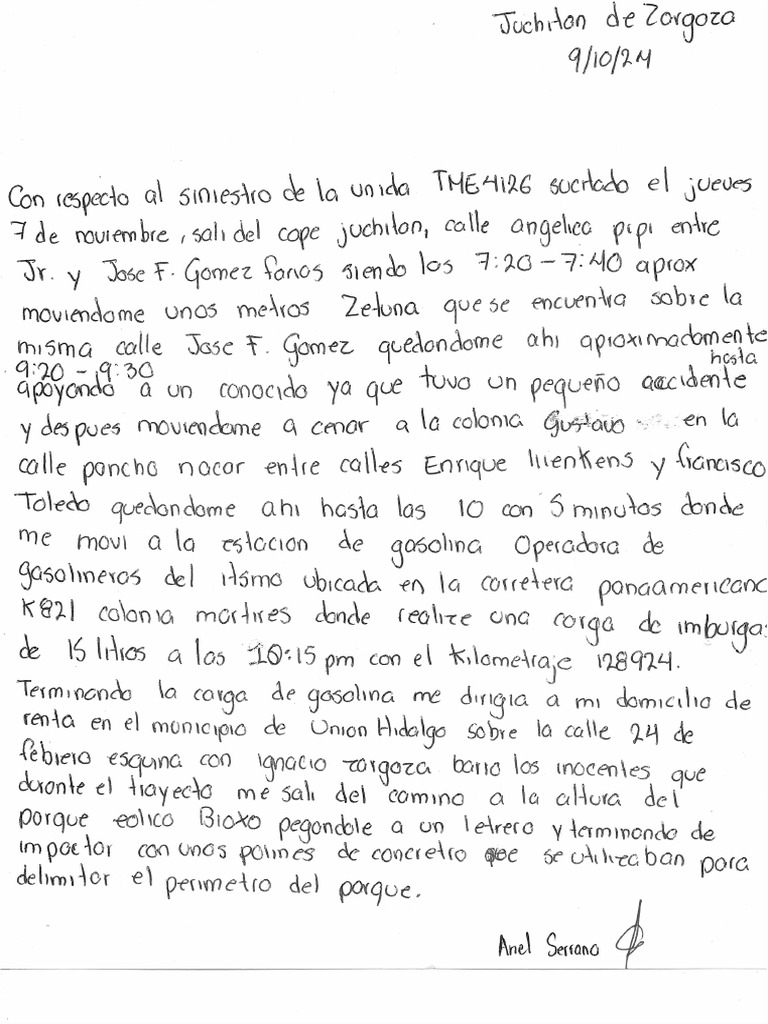 Juchitan de Zargoza
9/10/24
Con respecto al siniestro de la unida TME4126 sucitado el jueves
7 de noviembre, sali del cope juchitan, calle angelica pipi entre
Jr. y Jose F. Gomez farias siendo los 7:20 - 7:40 aprox
moviendome unos metros Zetuna que se encuentra sobre la
misma calle Jose F. Gomez quedandome ahi aproximadamente
9:20 - 9:30 hasta
apoyando a un conocido ya que tuvo un pequeño accidente
y despues moviendome a cenar a la colonia Gustavo en la
calle pancho nacar entre calles Enrique y francisco
Toledo quedandome ahi hasta las 10 con 5 minutos donde
me movi a la estacion de gasolina Operadora de
gasolineros del itsmo ubicada en la carretera panaamericana
K821 colonia martires donde realize una carga de imburgas
de 15 litros a las 10:15 pm con el Kilometraje 128924.
Terminando la carga de gasolina me dirigia a mi domicilio de
renta en el municipio de Union Hidalgo sobre la calle 24 de
febrero esquina con ignacio zargoza bario los inocentes que
durante el trayecto me sali del camino a la altura del
parque eolico Bioxo pegandole a un letrero y terminando de
impactar con unos polines de concretro que se utilizaban para
delimitar el perimetro del parque.
Anel Serrano